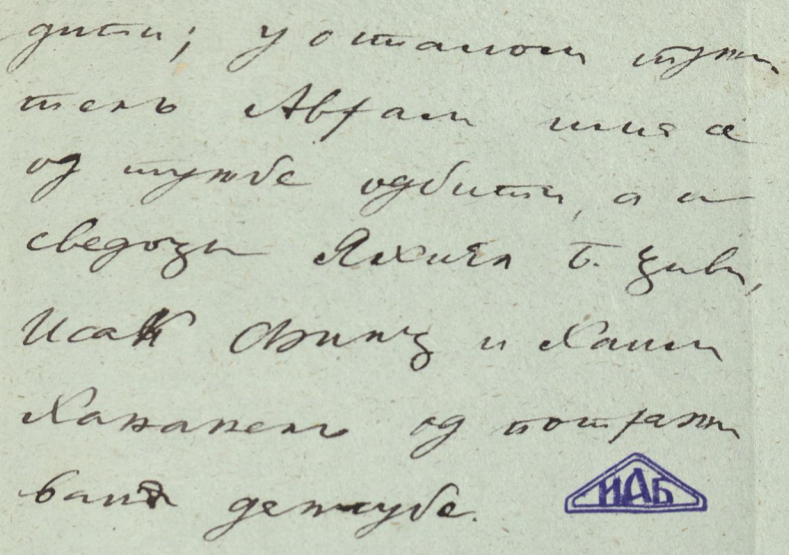 дити; у осталом тужи
тељ Аврам има се
од тужбе одбити, а и
сведоци Јахиел Б. Циви,
Исак Финц и Хаим
Хананел од потражи
вања дангубе.
ИАБ